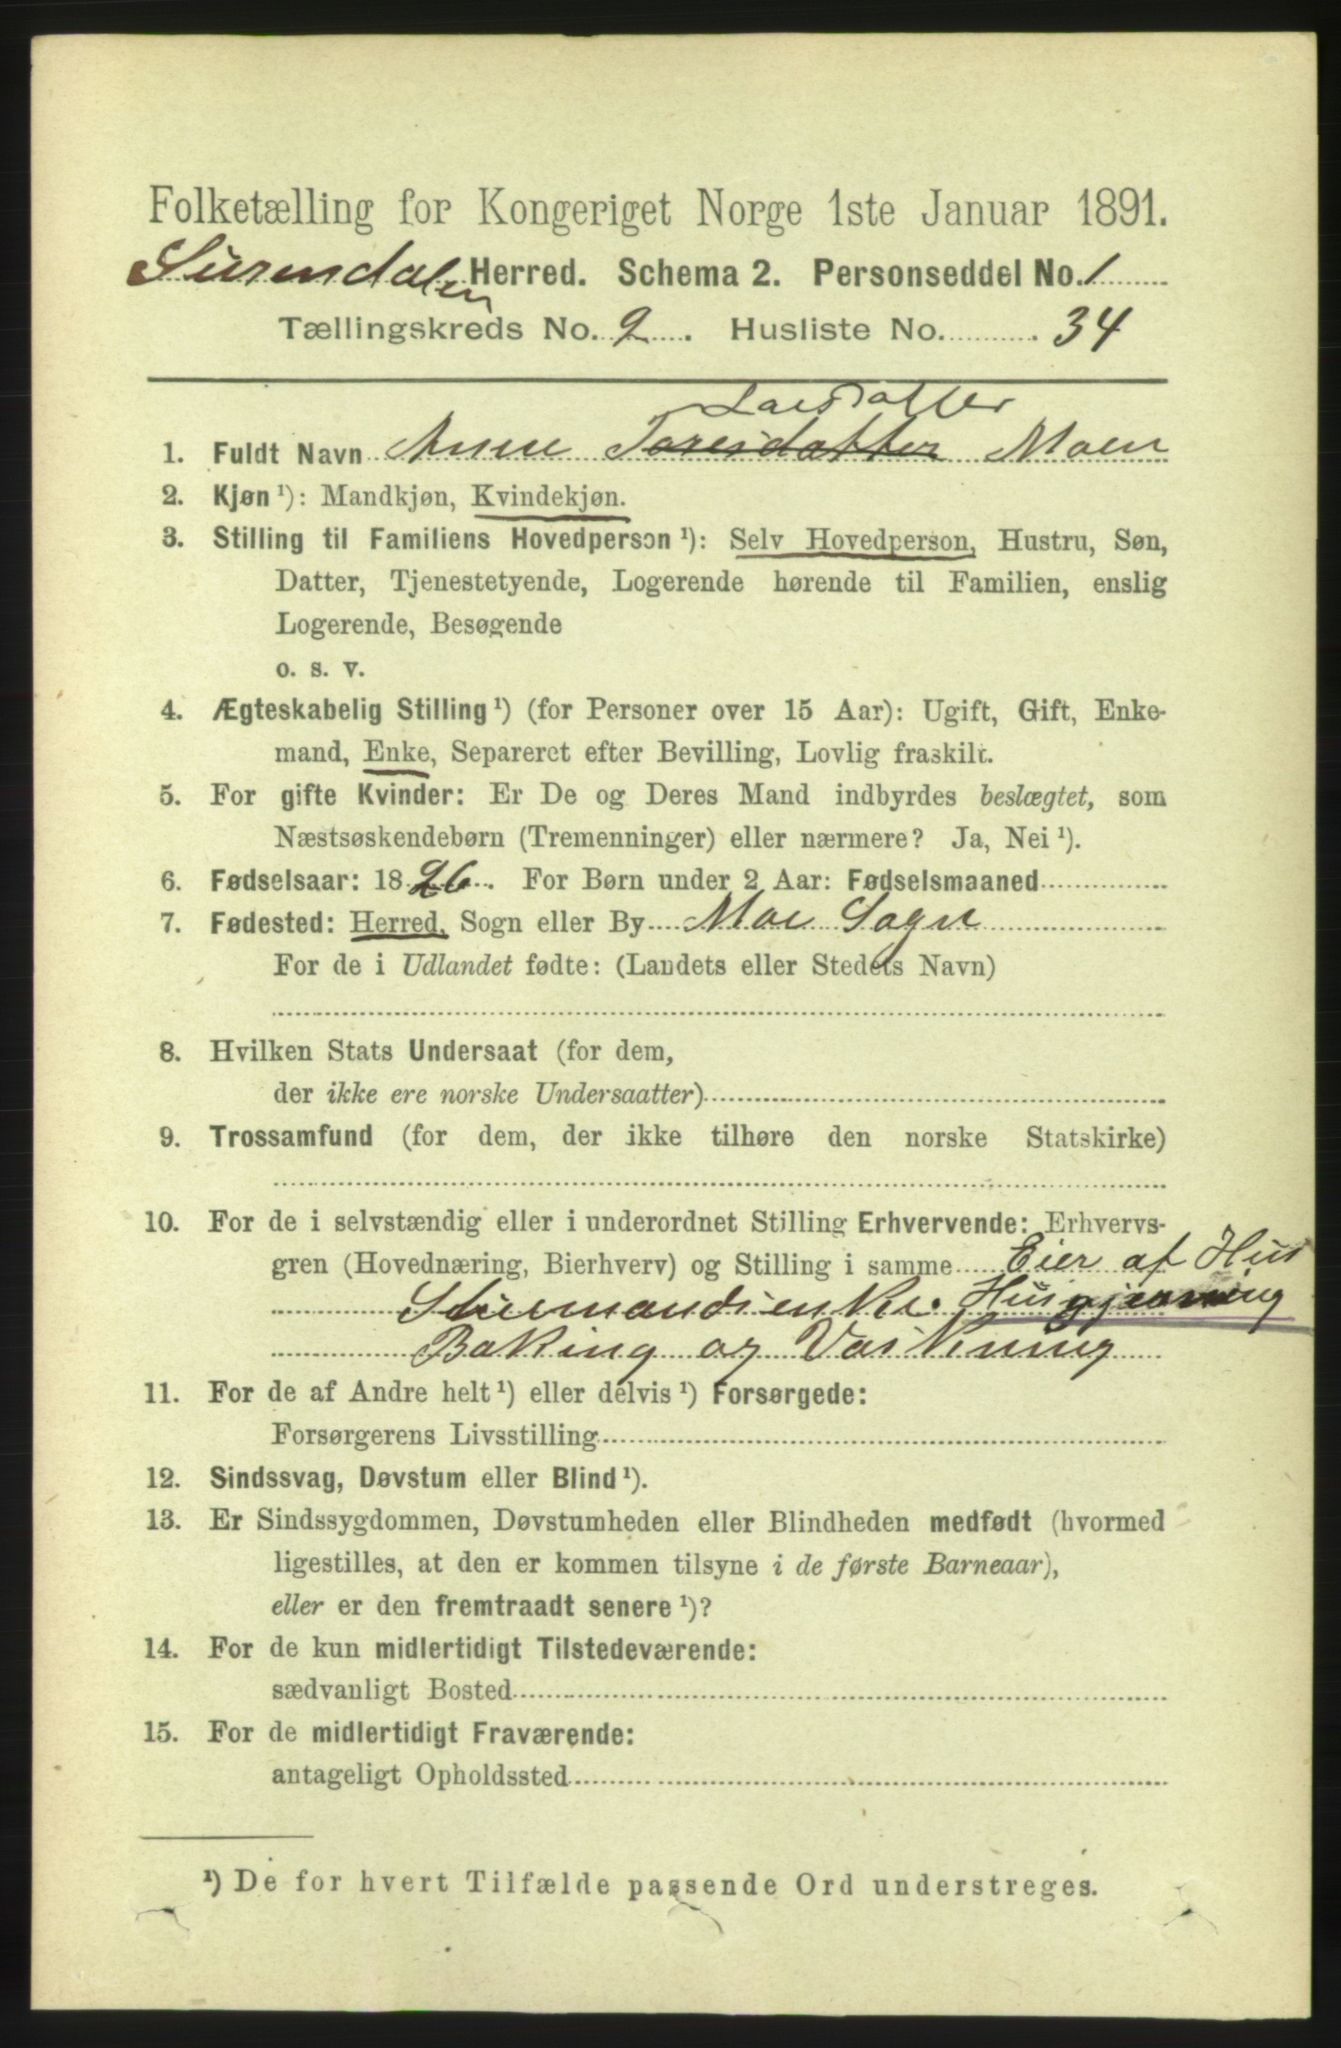 Folketælling for Kongeriget Norge 1ste Januar 1891.
Surendalen Herred. Schema 2. Personseddel No. 1
Tællingskreds No. 2. Husliste No. 34
Larsdatter
1. Fuldt Navn Anne Toresdatter Moen
2. Kjøn ¹): Mandkjøn, Kvindekjøn.
3. Stilling til Familiens Hovedperson ¹): Selv Hovedperson, Hustru, Søn,
Datter, Tjenestetyende, Logerende hørende til Familien, enslig
Logerende, Besøgende
o. s. v.
4. Ægteskabelig Stilling ¹) (for Personer over 15 Aar): Ugift, Gift, Enke-
mand, Enke, Separeret efter Bevilling, Lovlig fraskilt.
5. For gifte Kvinder: Er De og Deres Mand indbyrdes beslægtet, som
Næstsøskendebørn (Tremenninger) eller nærmere? Ja, Nei ¹).
6. Fødselsaar: 1826. For Børn under 2 Aar: Fødselsmaaned
7. Fødested: Herred, Sogn eller By Moe Sogn
For de i Udlandet fødte: (Landets eller Stedets Navn)
8. Hvilken Stats Undersaat (for dem,
der ikke ere norske Undersaatter)
9. Trossamfund (for dem, der ikke tilhøre den norske Statskirke)
10. For de i selvstændig eller i underordnet Stilling Erhvervende: Erhvervs-
gren (Hovednæring, Bierhverv) og Stilling i samme Eier af Hus
Husgjerning
Baking og Vaskning
11. For de af Andre helt ¹) eller delvis ¹) Forsørgede:
Forsørgerens Livsstilling
12. Sindssvag, Døvstum eller Blind ¹).
13. Er Sindssygdommen, Døvstumheden eller Blindheden medfødt (hvormed
ligestilles, at den er kommen tilsyne i de første Barneaar),
eller er den fremtraadt senere ¹)?
14. For de kun midlertidigt Tilstedeværende:
sædvanligt Bosted
15. For de midlertidigt Fraværende:
antageligt Opholdssted
¹) De for hvert Tilfælde passende Ord understreges.